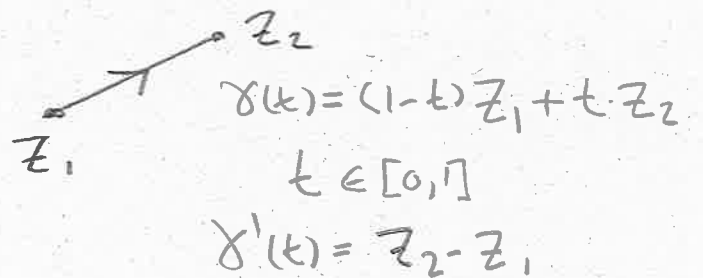 Z₂
γ(t) = (1-t)Z₁ + t·Z₂
Z₁
t ∈ [0,1]
γ'(t) = Z₂ - Z₁